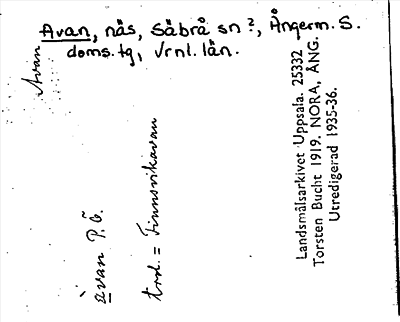 Avan, näs, Säbrå sn?, Ångerm. S.
doms. tg, Vrnl. län.
Avan
àvan P.b.
trol. = Finnsvikavan
Landsmålsarkivet Uppsala. 25332
Torsten Bucht 1919. NORA, ÅNG.
Utredigerad 1935-36.